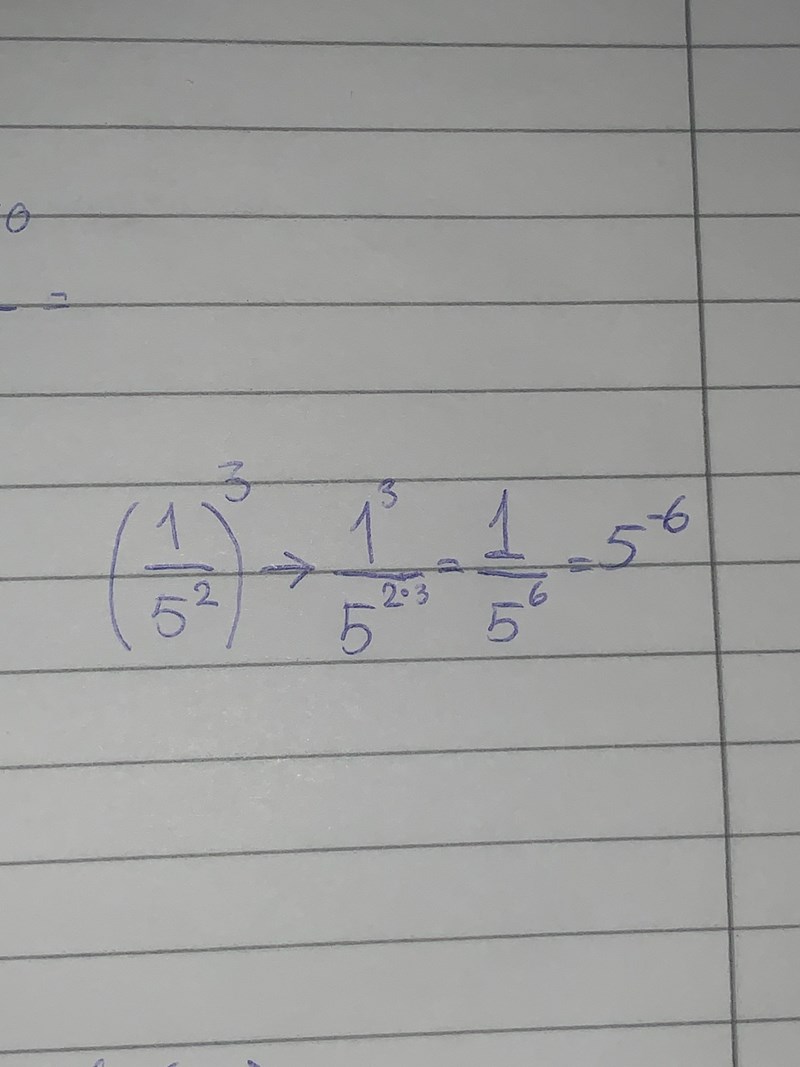 0
- =
(1/5²)³ → 1³/5²·³ = 1/5⁶ = 5⁻⁶